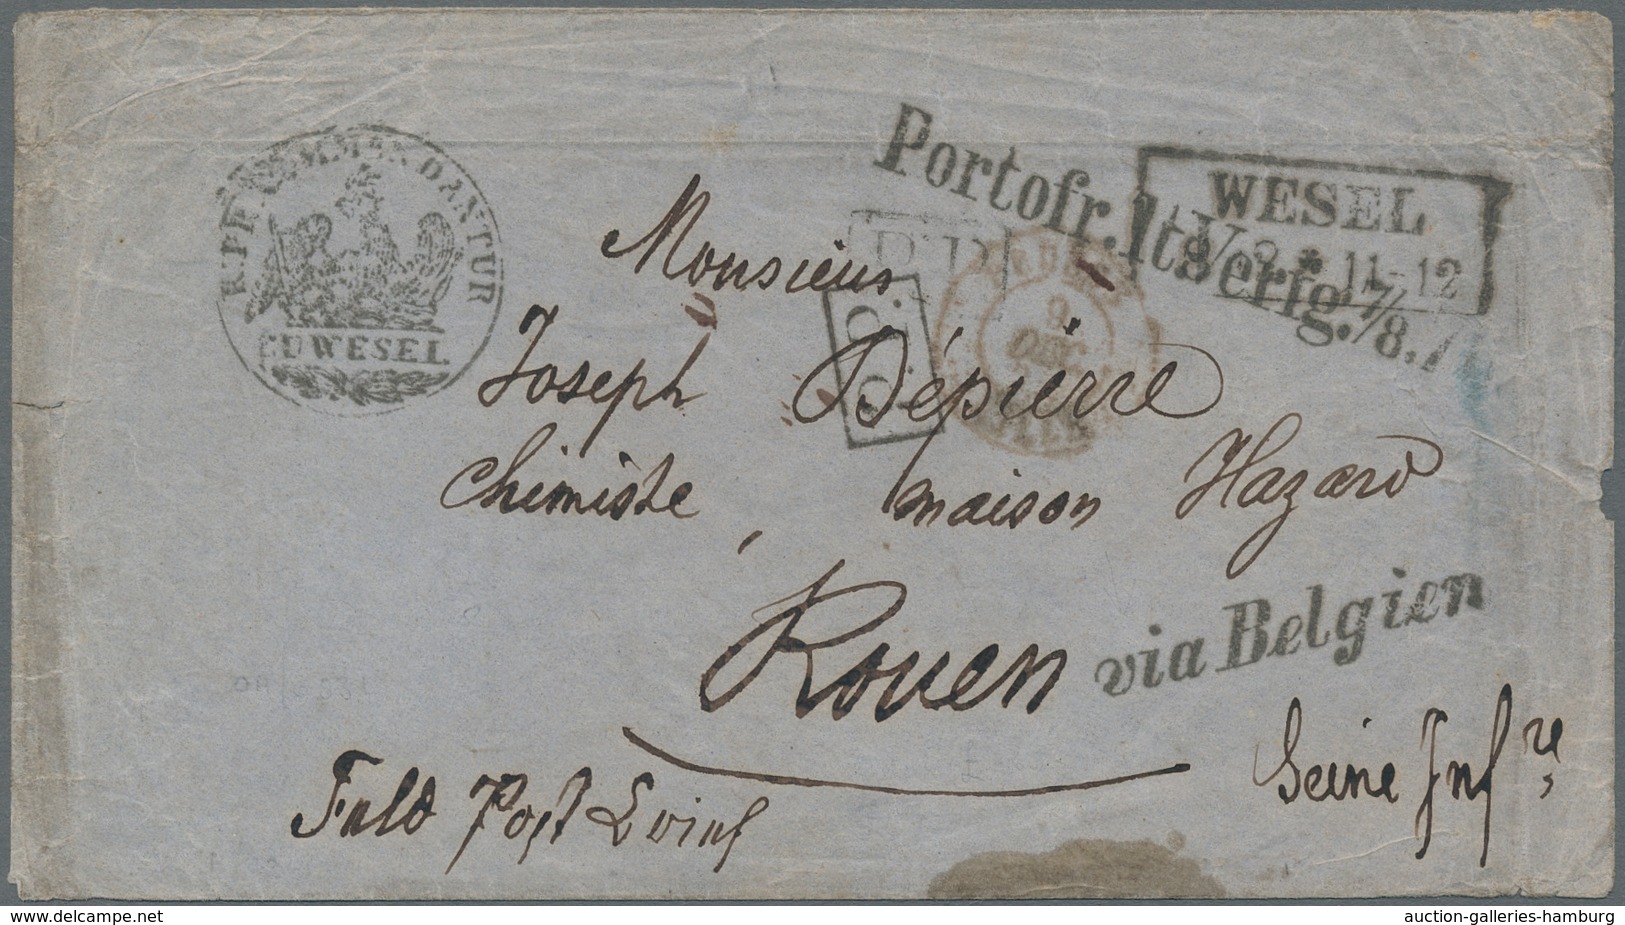 K: PR: KOMMANDANTUR
ZU WESEL
Portofr. lt. Verfg. 7/8.
WESEL
11-12
P.D.
P.D.
9
DEC
Monsieur
Joseph Dépierre
Chimiste, maison Hazard
Rouen
via Belgien
Seine Infre
Feld Post Brief
auction-galleries-hamburg
www.delcampe.net